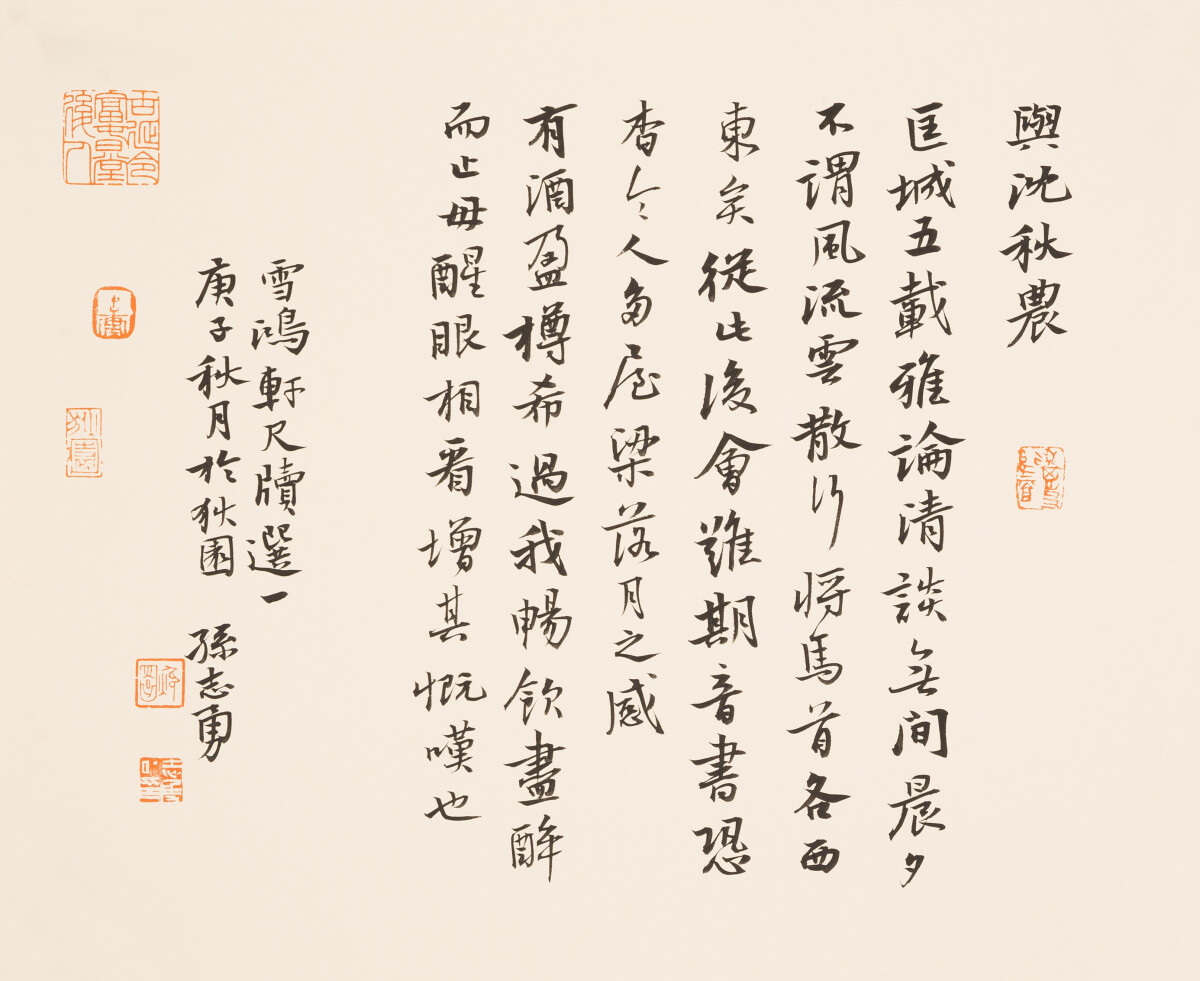 與沈秋農
匡城五載雅論清談無間晨夕
不謂風流雲散行將馬首各西
東矣從此後會難期音書恐
杳令人多屋梁落月之感
有酒盈樽希過我暢飲盡醉
而止毋醒眼相看增其慨嘆也
雪鴻軒尺牘選一
庚子秋月於狄園 孫志勇
狄園